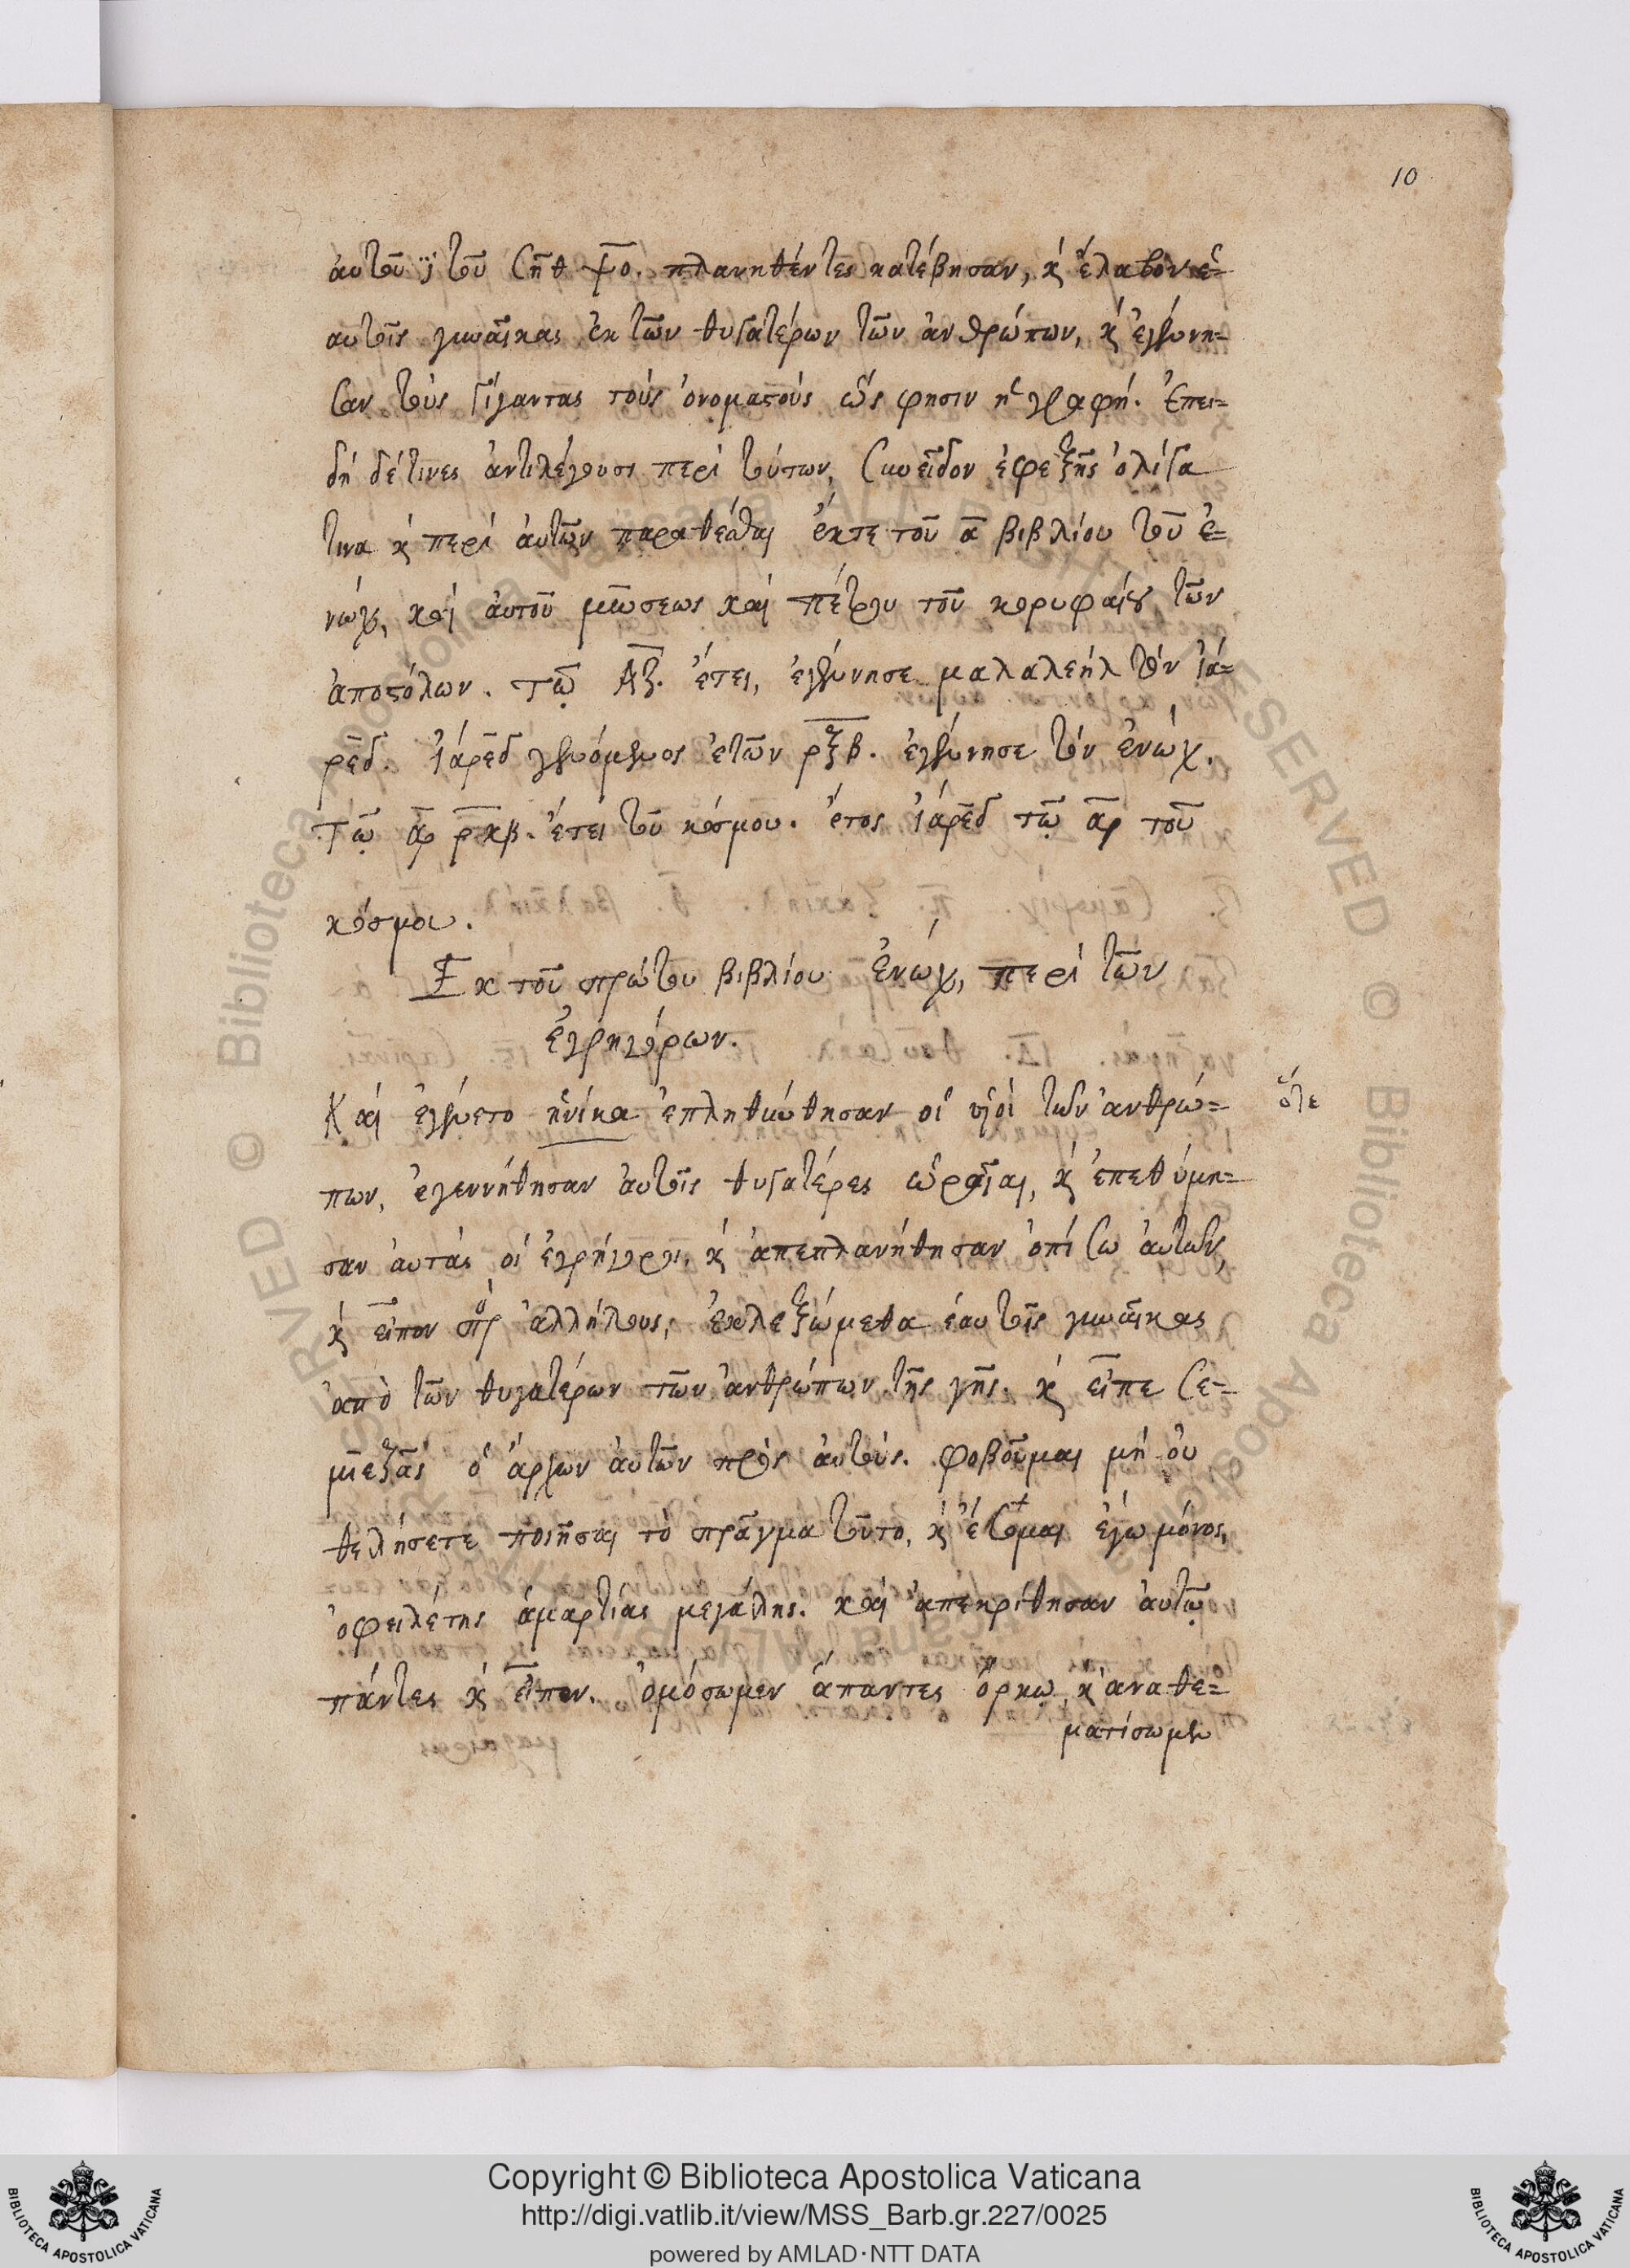 10
αυτοῦ ϊ τοῦ Σὴθ ψο. πλανηθέντες κατέβησαν, κ̀ ἔλαβον ἑ-
αυτοῖς γυναῖκας ἐκ τῶν θυγατέρων τῶν ἀνθρώπων, κ̀ ἐγέννη-
σαν τοὺς γίγαντας τοὺς ὀνομαστοὺς ὥς φησιν ἡ γραφή. Ἐπει-
δὴ δέ τινες ἀντιλέγουσι περὶ τούτων, συνεῖδον ἐφεξῆς ὀλίγα
τινα κ̀ περὶ ἀυτῶν παραθέσθαι ἔκ τε τοῦ α βιβλίου τοῦ ἐ-
νώχ, καὶ ἀυτοῦ μωσεως καὶ πέτρου τοῦ κορυφαίου τῶν
ἀποστόλων. τῷ Αξ. ἔτει, ἐγέννησε μαλαλεὴλ τὸν ἰά-
ρεδ. ἰάρεδ γενόμενος ἐτῶν ρξβ. ἐγέννησε τὸν ἐνώχ.
τῷ ρκβ. ἔτει τοῦ κόσμου. ἔτος ἰάρεδ τῷ τοῦ
κόσμου.
Εκ τοῦ πρώτου βιβλίου Ἐνώχ, περὶ τῶν
ἐγρηγόρων.
Καὶ ἐγένετο ἡνίκα ἐπληθύνθησαν οἱ υἱοὶ τῶν ἀνθρώ-
ὅτε
πων, ἐγεννήθησαν ἀυτοῖς θυγατέρες ὡραῖαι, κ̀ ἐπεθύμη-
σαν ἀυτὰς οἱ ἐγρήγοροι, κ̀ ἀπεπλανήθησαν ὀπίσω ἀυτῶν,
κ̀ εἶπον πρὸ ἀλλήλους, ἐκλεξώμεθα ἑαυτοῖς γυναῖκας
ἀπὸ τῶν θυγατέρων τῶν ἀνθρώπων τῆς γῆς. κ̀ εἶπε Σε-
μιεξᾶς ὁ ἄρχων ἀυτῶν πρὸς ἀυτούς. φοβοῦμαι μὴ οὐ
θελήσετε ποιῆσαι τὸ πρᾶγμα τοῦτο, κ̀ ἔσομαι ἐγω μόνος,
ὀφειλέτης ἁμαρτίας μεγάλης. καὶ ἀπεκρίθησαν ἀυτῷ
πάντες κ̀ εἶπον. ὀμόσωμεν ἅπαντες ὅρκω κ̀ ἀναθε-
ματίσωμεν
Copyright © Biblioteca Apostolica Vaticana
http://digi.vatlib.it/view/MSS_Barb.gr.227/0025
powered by AMLAD·NTT DATA
BIBLIOTECA APOSTOLICA VATICANA
BIBLIOTECA APOSTOLICA VATICANA